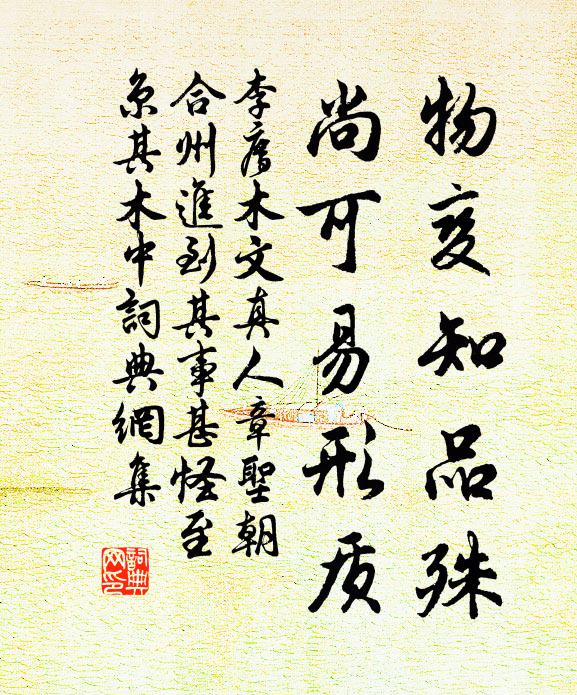 物变知品殊
尚可易形质
李木文真人章聖朝
合州進到其事甚怪至
京其木中詞典網集
詞典
网印